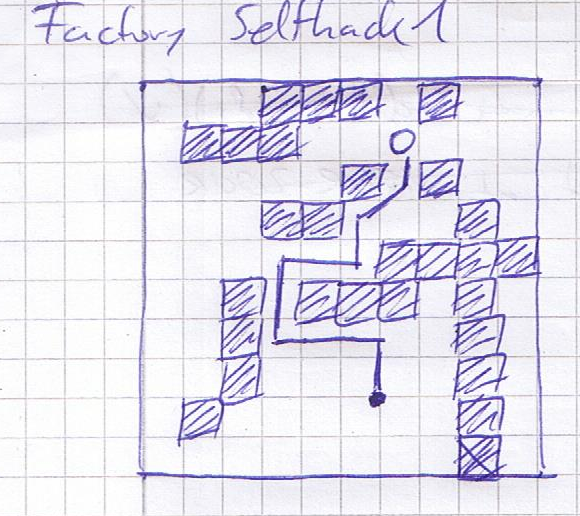 Factory Selfhack 1